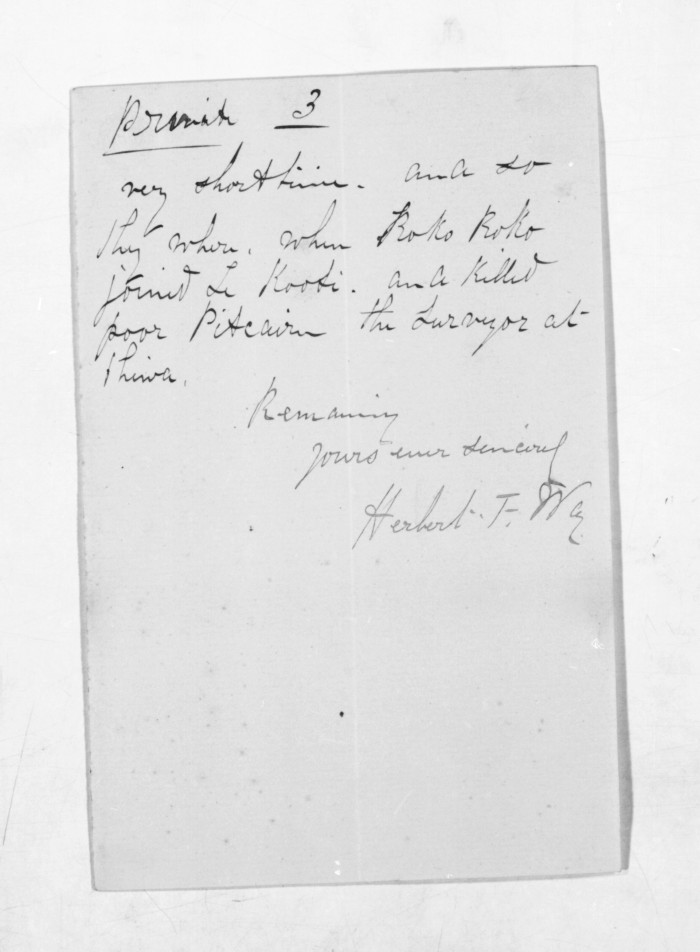 Private 3
very short time. and so
they where. when Roko Roko
joined Te Kooti. and killed
poor Pitcairn the Surveyor at
Ohiwa.
Remaining
yours ever sincerely
Herbert. F. Way